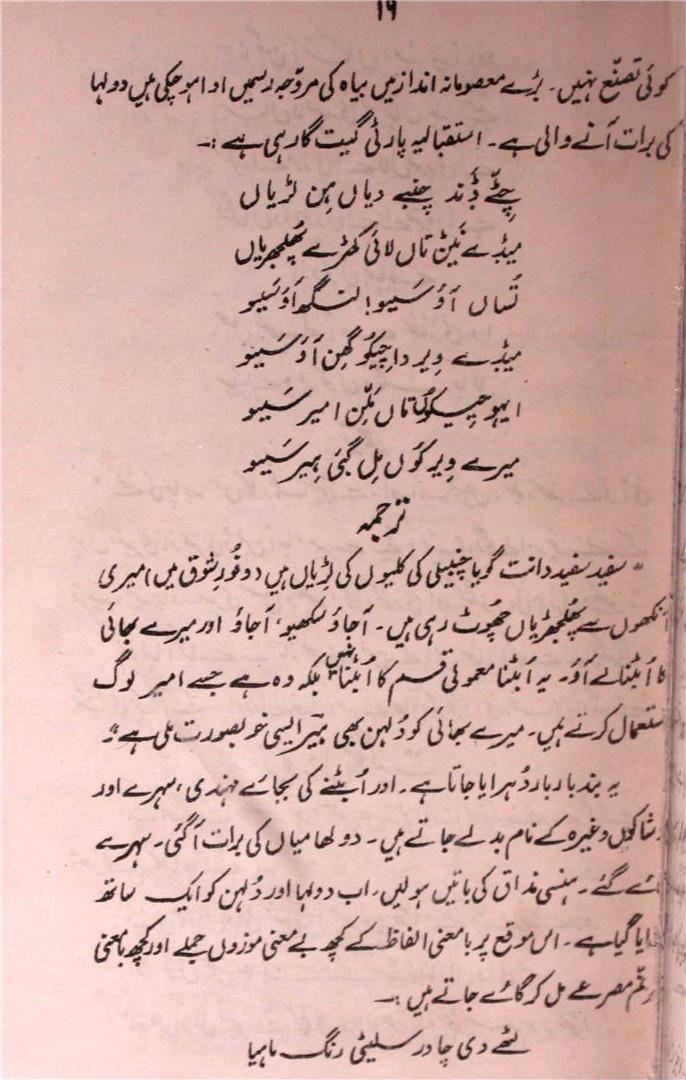 ۱۹
کوئی تصنّع نہیں۔ بڑے معصومانہ انداز میں بیاہ کی مروّجہ رسمیں ادا ہو چکی ہیں دولہا
کی برات آنے والی ہے۔ استقبالیہ پارٹی گیت گا رہی ہے :۔
چِٹّے ڈَند چنبے دیاں ہِن لڑیاں
میڈے نَیڻ تاں لائی کھڑے پُھلجھڑیاں
تُساں آؤ سَیو! لنگھ آؤ سَیو
میڈے وِیر دا چِیکُو گِھن آؤ سَیو
ایہو چیکُو تاں مَلّن امیر سَیو
میرے وِیر کُوں مِل گئی ہِیر سَیو
ترجمہ
" سفید سفید دانت گویا چنبیلی کی کلیوں کی لڑیاں ہیں (وفُورِ شوق میں) میری
آنکھوں سے پُھلجھڑیاں چُھوٹ رہی ہیں۔ آجاؤ سکھیو، آجاؤ اور میرے بھائی
کا اُبٹنا لے آؤ۔ یہ اُبٹنا معمولی قسم کا اُبٹنا نہیں بلکہ وہ ہے جسے امیر لوگ
استعمال کرتے ہیں۔ میرے بھائی کو دُلہن بھی ہیر ایسی خوبصورت ملی ہے"۔
یہ بند بار بار دُہرایا جاتا ہے۔ اور اُبٹنے کی بجائے مہندی، سہرے اور
وغیرہ کے نام بدلے جاتے ہیں۔ دولھا میاں کی برات آ گئی۔ سہرے
گائے گئے۔ ہنسی مذاق کی باتیں ہو لیں۔ اب دولہا اور دُلہن کو ایک ساتھ
گیا ہے۔ اس موقع پر بامعنی الفاظ کے کچھ بے معنی موزوں جملے اور کچھ بامعنی
مصرعے مل کر گائے جاتے ہیں :۔
لٹھے دی چادر سلیٹی رنگ ماہیا